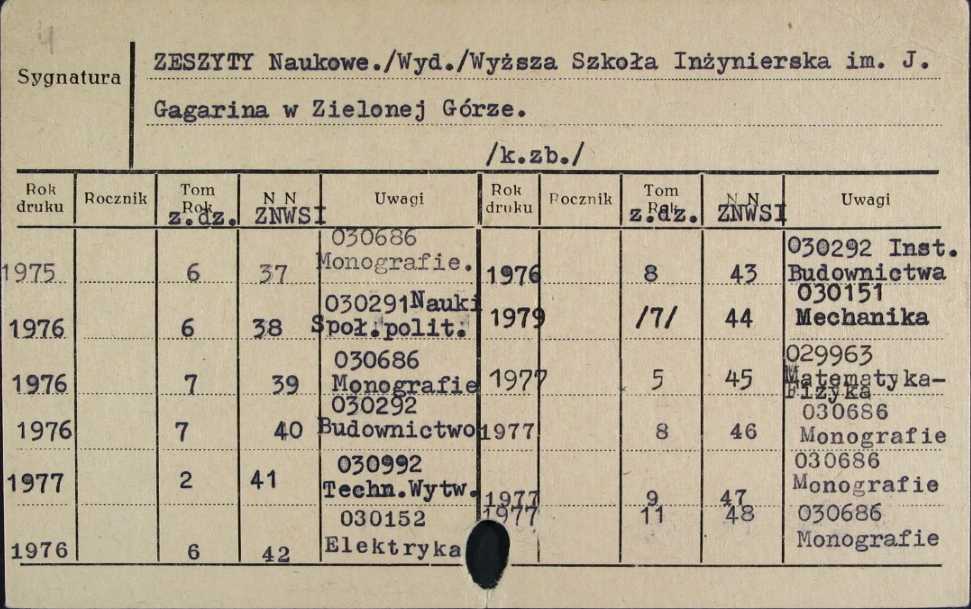 4
Sygnatura
ZESZYTY Naukowe./Wyd./Wyższa Szkoła Inżynierska im. J.
Gagarina w Zielonej Górze.
/k.zb./
Rok druku Rocznik Tom Rok z.dz. N N ZNWSI Uwagi
1975 6 37 030686 Monografie.
1976 6 38 030291Nauki Społ.polit.
1976 7 39 030686 Monografie
1976 7 40 030292 Budownictwo
1977 2 41 030992 Techn.Wytw.
1976 6 42 030152 Elektryka
Rok druku Rocznik Tom Rok z.dz. N N ZNWSI Uwagi
1976 8 43 030292 Inst. Budownictwa
1979 /7/ 44 030151 Mechanika
1977 5 45 029963 Matematyka-Fizyka
1977 8 46 030686 Monografie
1977 9 47 030686 Monografie
1977 11 48 030686 Monografie